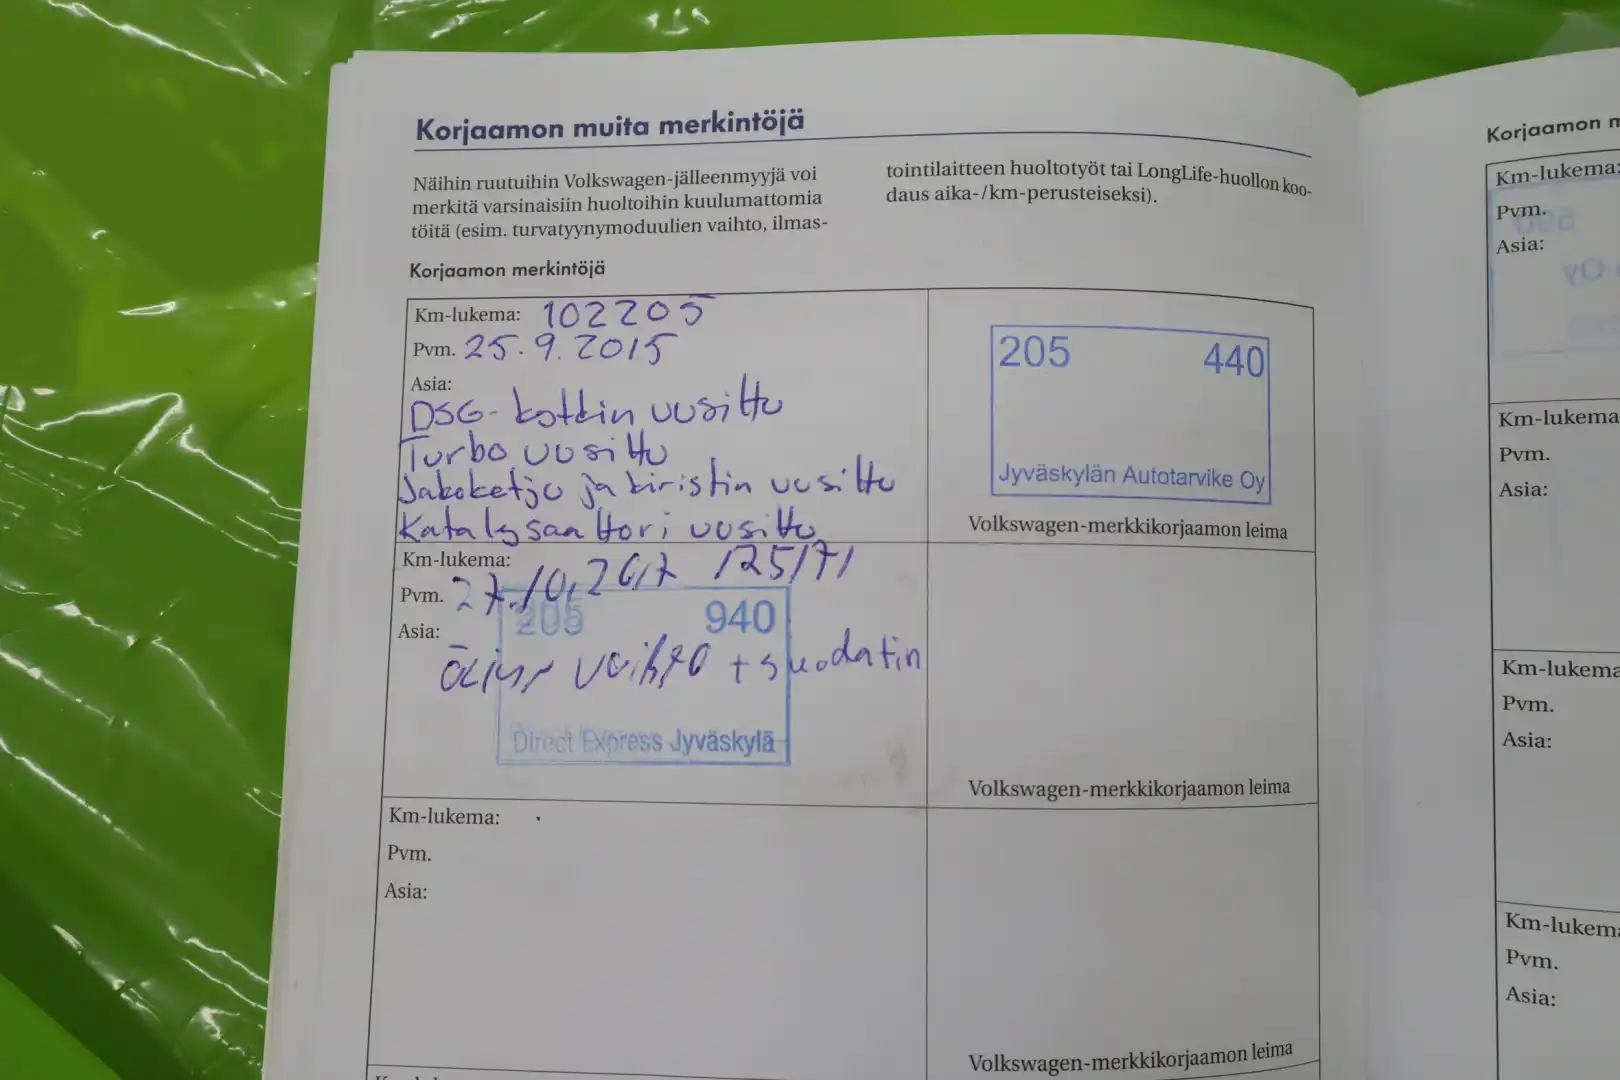 Korjaamon muita merkintöjä
Näihin ruutuihin Volkswagen-jälleenmyyjä voi
merkitä varsinaisiin huoltoihin kuulumattomia
töitä (esim. turvatyynymoduulien vaihto, ilmas-
tointilaitteen huoltotyöt tai LongLife-huollon koo-
daus aika-/km-perusteiseksi).
Korjaamon merkintöjä
Km-lukema: 102205
Pvm. 25.9.2015
Asia:
DSG-kytkin uusittu
Turbo uusittu
Jakoketju ja kiristin uusittu
Katalysaattori uusittu
205 440
Jyväskylän Autotarvike Oy
Volkswagen-merkkikorjaamon leima
Km-lukema: 125171
Pvm. 27.10.2017
Asia:
205 940
vaihto + suodatin
Direct Express Jyväskylä
Volkswagen-merkkikorjaamon leima
Km-lukema:
Pvm.
Asia:
Volkswagen-merkkikorjaamon leima
Korjaamon
Km-lukema:
Pvm.
Asia:
Km-lukema
Pvm.
Asia:
Km-lukema
Pvm.
Asia:
Km-lukema
Pvm.
Asia: